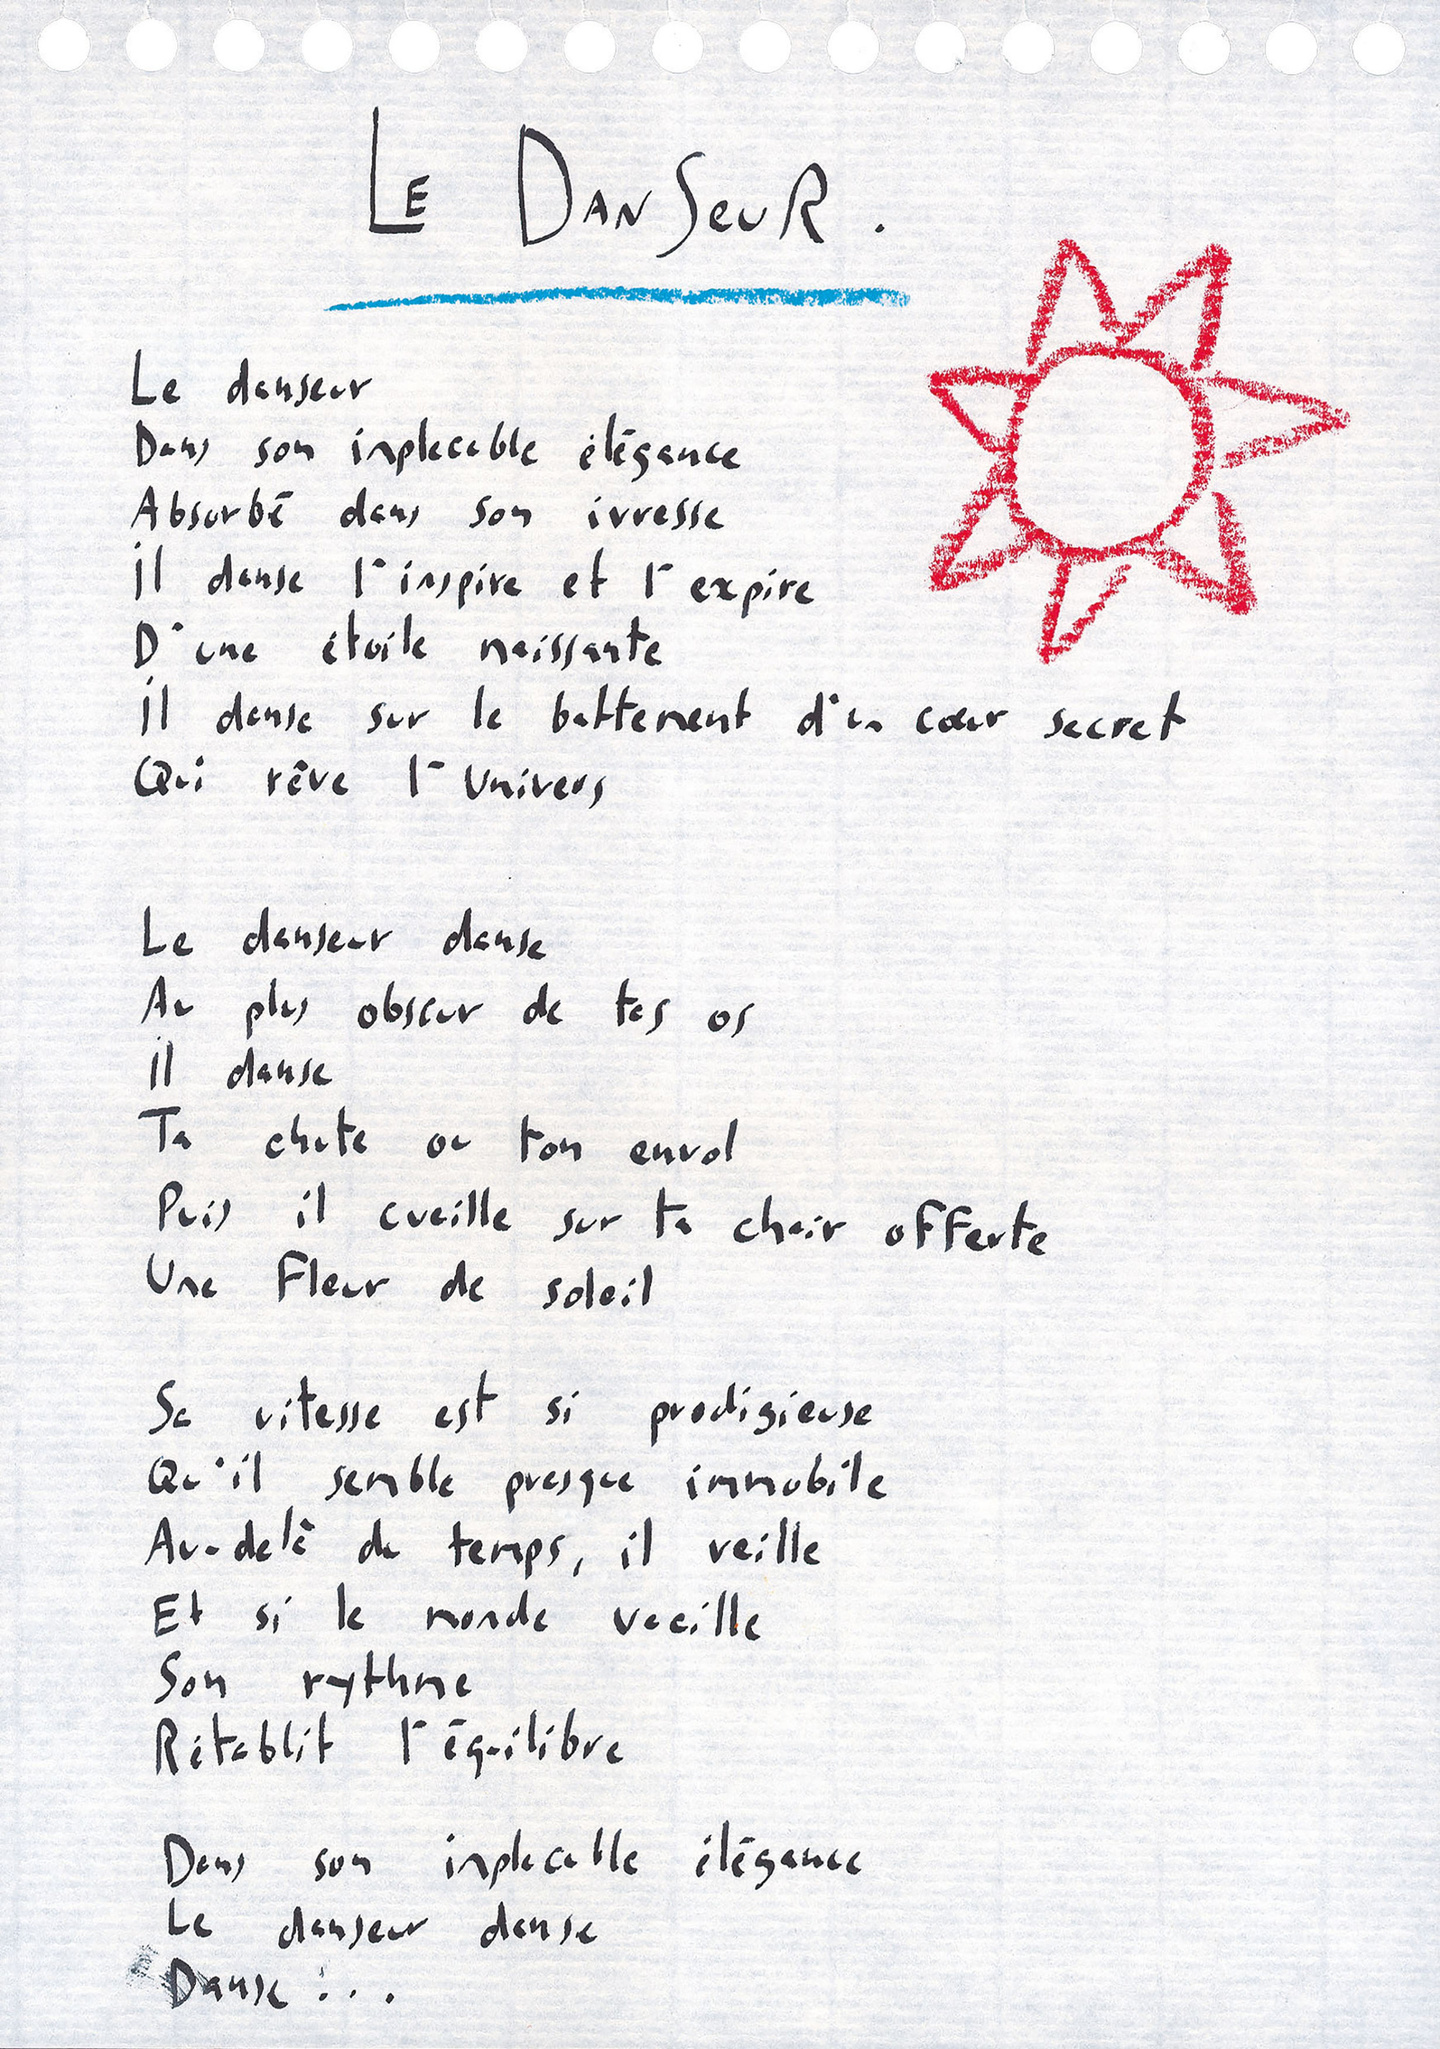 LE DANSEUR.
Le danseur
Dans son implacable élégance
Absorbé dans son ivresse
il danse l'inspire et l'expire
D'une étoile naissante
il danse sur le battement d'un cœur secret
Qui rêve l'Univers
Le danseur danse
Au plus obscur de tes os
il danse
Ta chute ou ton envol
Puis il cueille sur ta chair offerte
Une Fleur de soleil
Sa vitesse est si prodigieuse
Qu'il semble presque immobile
Au-delà du temps, il veille
Et si le monde vacille
Son rythme
Rétablit l'équilibre
Dans son implacable élégance
Le danseur danse
Danse !..